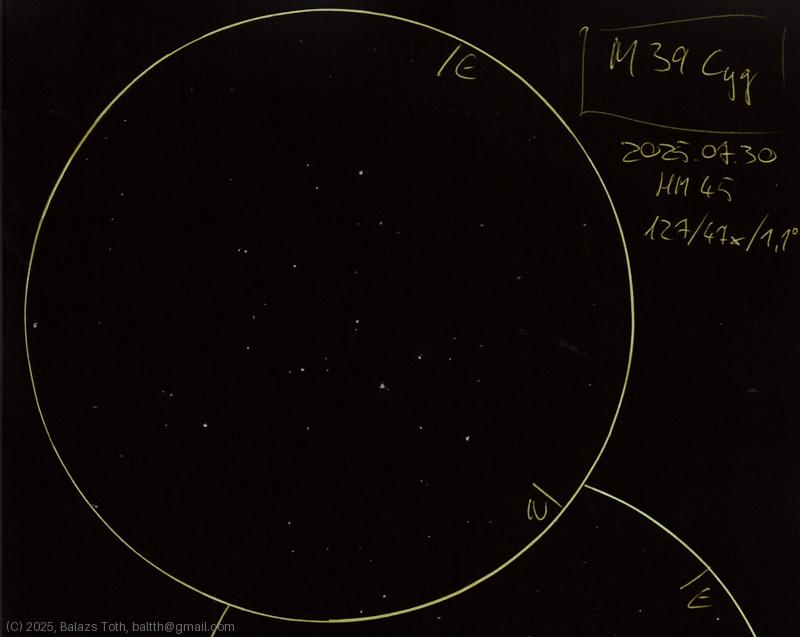 E
M 39 Cyg
2025.07.30
HM 45
127/47x/1,1°
N
E
(C) 2025, Balazs Toth, baltth@gmail.com